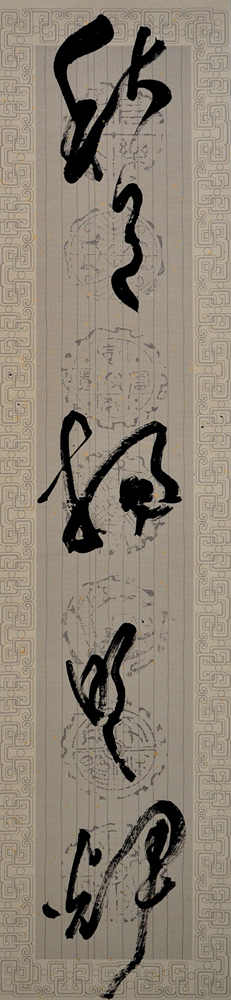 秋月揚明輝